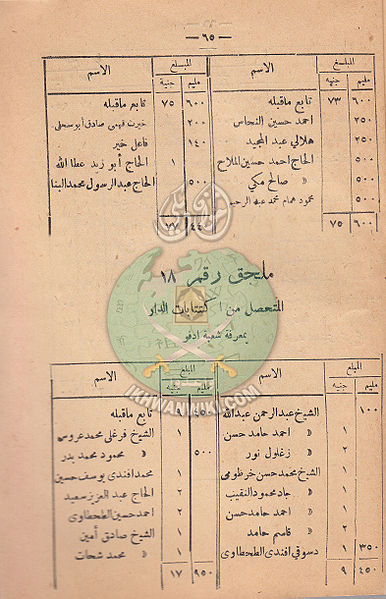 — ٦٥ —
المبلغ الاسم
مليم جنيه
٦٠٠ ٧٣ تابع ماقبله
٢٥٠ احمد حسين النحاس
٢٥٠ هلالي عبد المجيد
٥٠٠ الحاج احمد حسين الملاح
٥٠٠ » صالح مكي
٥٠٠ محمود همام محمد عبد الرحيم
٦٠٠ ٧٥
المبلغ الاسم
مليم جنية
٦٠٠ ٧٥ تابع ماقبله
٢٠٠ خيرت فهمى صادق أبو سحلى
١٤٠ فاعل خير
١ الحاج أبو زيد عطا الله
٥٠٠ الحاج عبد الرسول محمد البنا
٧٧
ملحق رقم ١٨
المتحصل من اكتتابات الدار
بمعرفة شعبة ادفو
المبلغ الاسم
مليم جنيه
١٠٠ الشيخ عبد الرحمن عبد الله
١ » احمد حامد حسن
١ » زغلول نور
١ الشيخ محمد حسن خرطومى
٢ » جاد محمود النقيب
١ » احمد حامد حسن
٢ » قاسم حامد
٣٥٠ ١ دسوقي افندى الطحطاوى
٤٥٠ ٩
المبلغ الاسم
مليم جنيه
٤٥٠ تابع ماقبله
١ الشيخ فرغلى محمد عروسى
٥٠٠ » محمود محمد بدر
١ محمد افندى يوسف حسين
٢ الحاج عبد العزيز سعيد
٢ احمد حسين الطحطاوى
١ الشيخ صادق أمين
١ » محمد شحات
٩٥٠ ١٧
IKHWANWIKI.COM